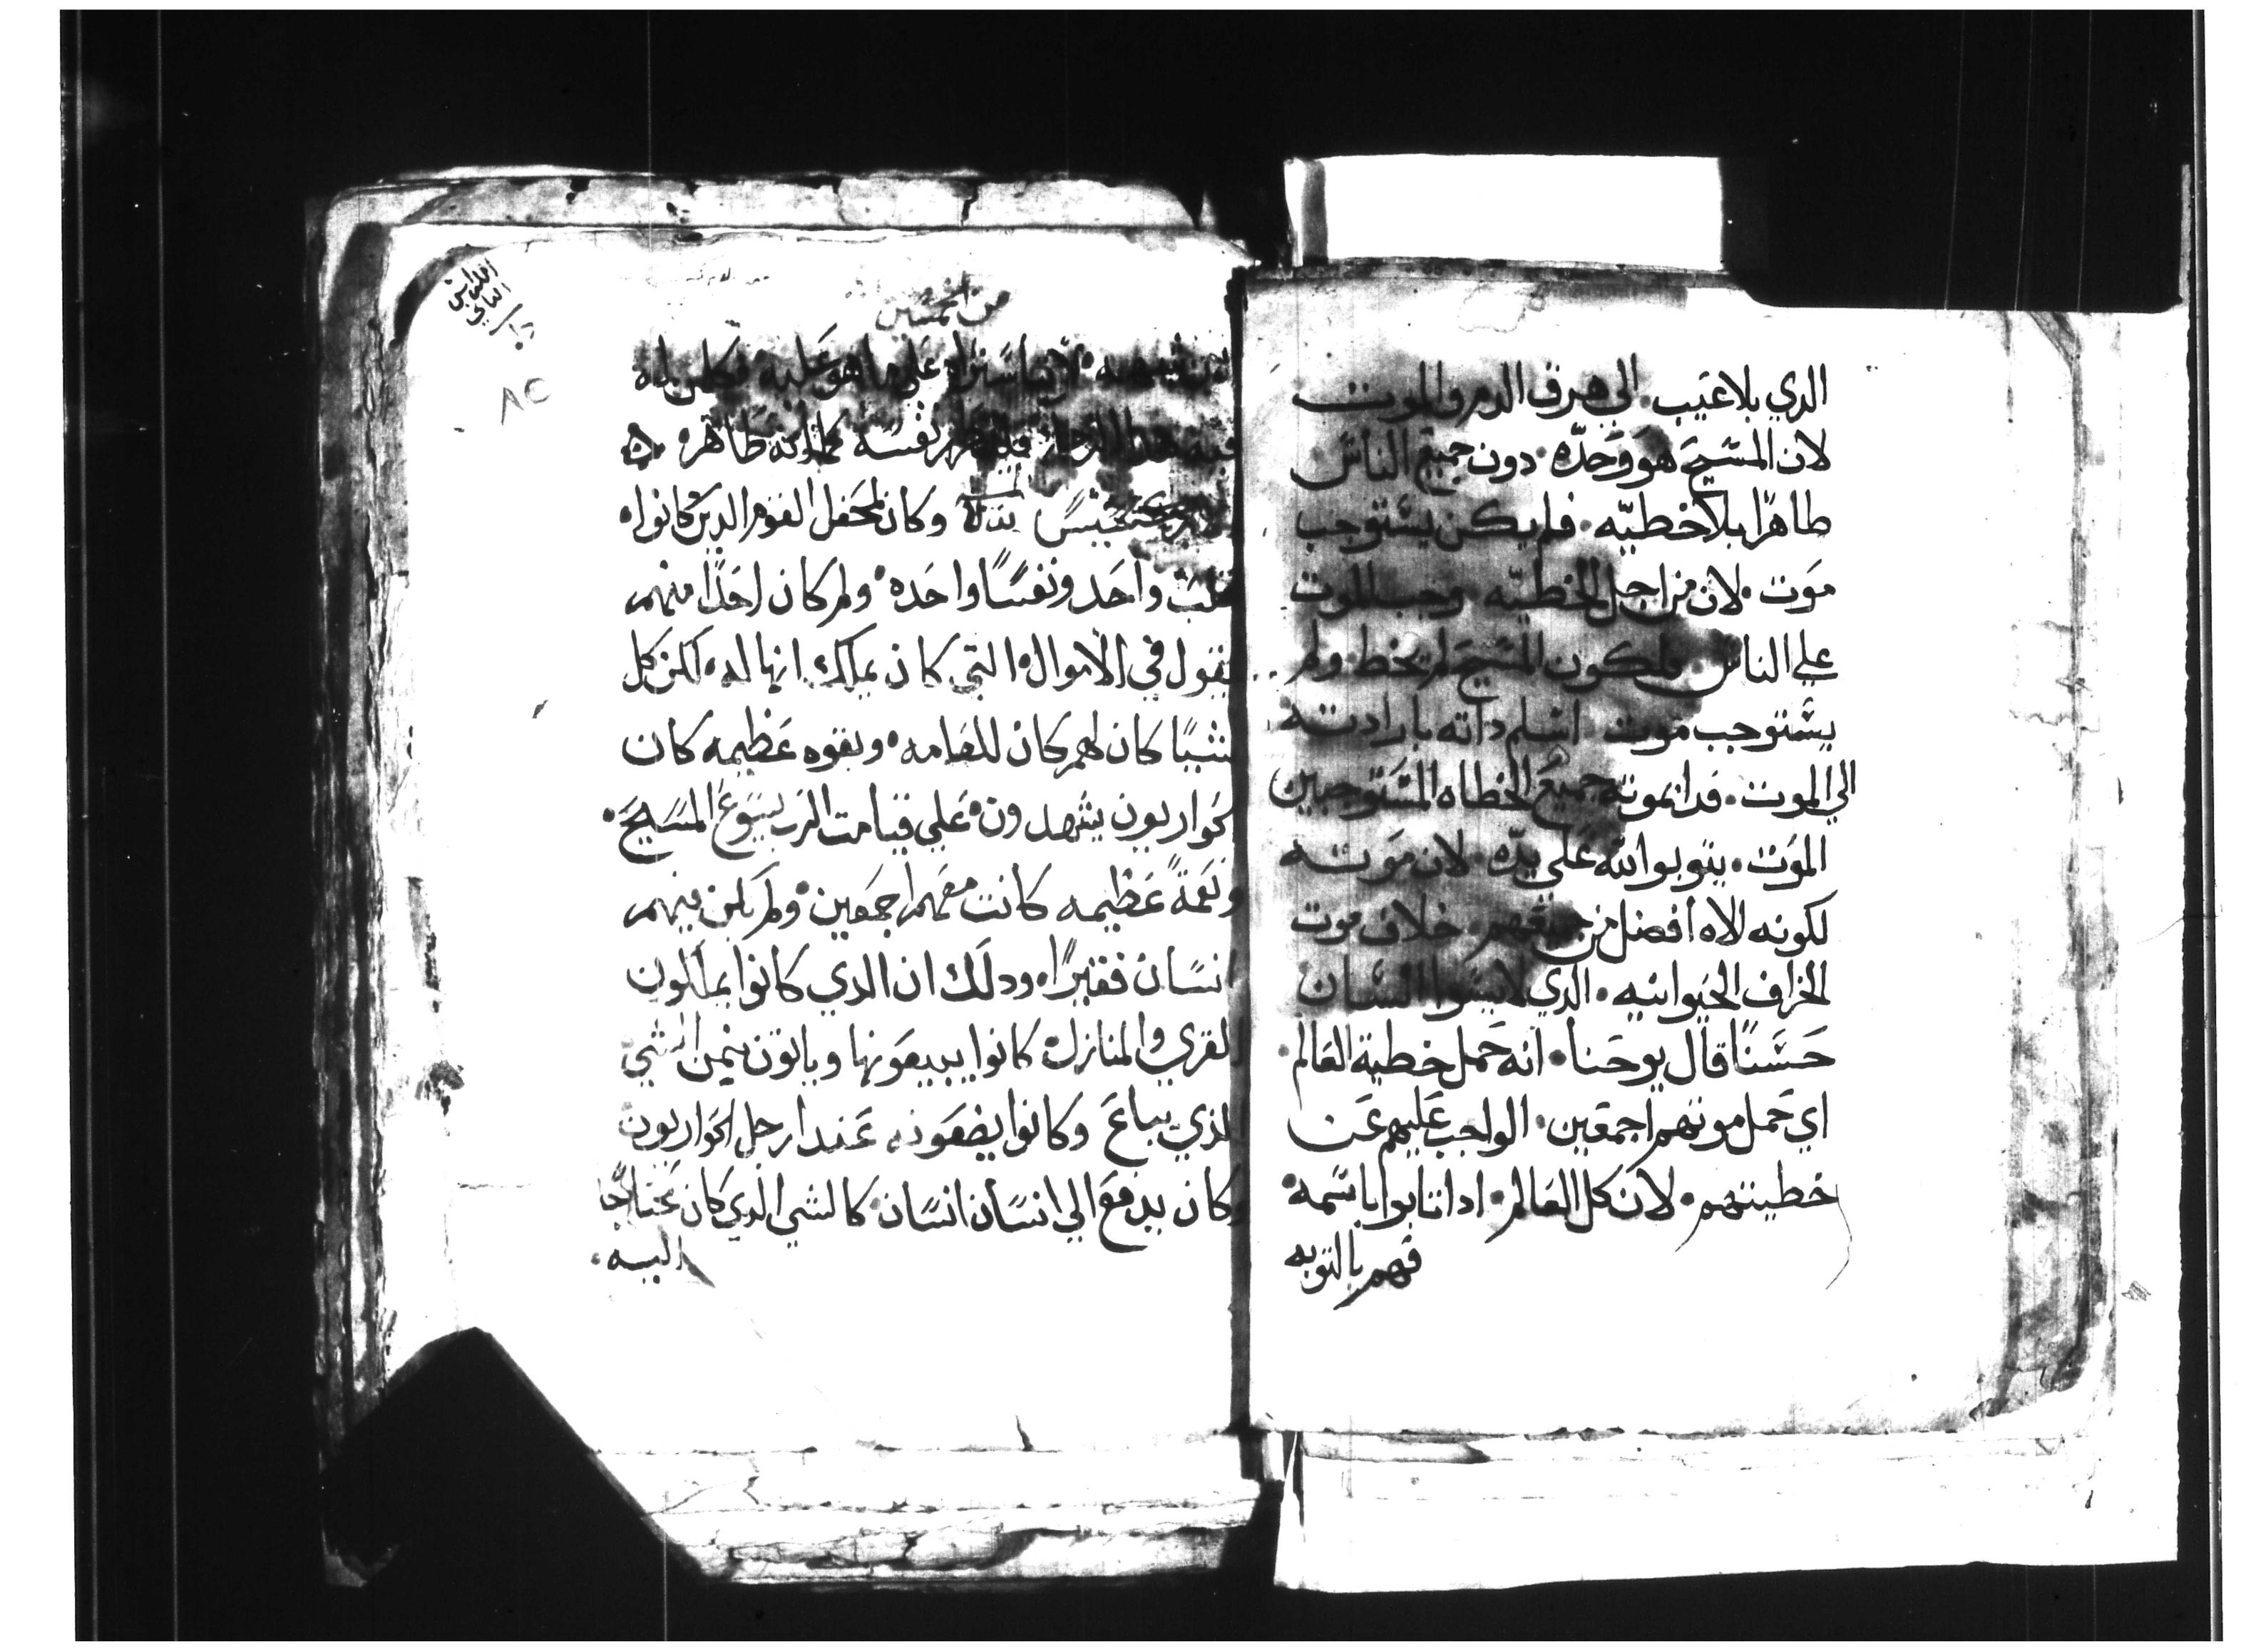 الدي بلا عيب. الي هرق الدم والموت
لان المسيح هو وحده. دون جميع الناس
طاهرا بلا خطيه. فلم يكن يستوجب
موت. لان من اجل الخطيه وجب الموت
علي الناس. فلكون المسيح لم يخط. ولم
يستوجب موت. اسلم داته بارادته
الي الموت. فدا بموته جميع الخطاه المستوجبين
الموت. يتوبوا لله علي يده. لان موته
لكونه لاه افضل من جميعهم. خلاف موت
الخراف الحيوانيه. الدي لا يسوا انسان
حسنًا قال يوحنا. انه حمل خطية العالم.
اي حمل موتهم اجمعين. الواجب عليهم عن
خطيتهم. لان كل العالم. ادا تابوا باسمه.
فهم بالتوبه
من الخمسين
لاننا سنراه علي ما هو عليه. فكلمن له
هدا الرجا. فليطهر نفسه كما انه طاهر.
وكان لمحفل القوم الدين كانوا
بقلب واحد ونفسًا واحده. ولم كان احدًا منهم
يقول في الاموال التي كان يملك انها له. لكن كل
شيًا كان لهم كان للعامه. وبقوه عظيمه كان
الحواريون يشهدون. علي قيامت الرب يسوع المسيح.
ونعمةً عظيمه كانت معهم اجمعين. ولم يكن منهم
انسان فقيرًا. ودلك ان الدي كانوا يملكون
القري والمنازل. كانوا يبيعونها وياتون بثمن الشي
الذي يباع وكانوا يضعونه عند ارجل الحواريون
وكان يدفع الي انسان انسان. كالشي الدي كان محتاجًا
اليه.